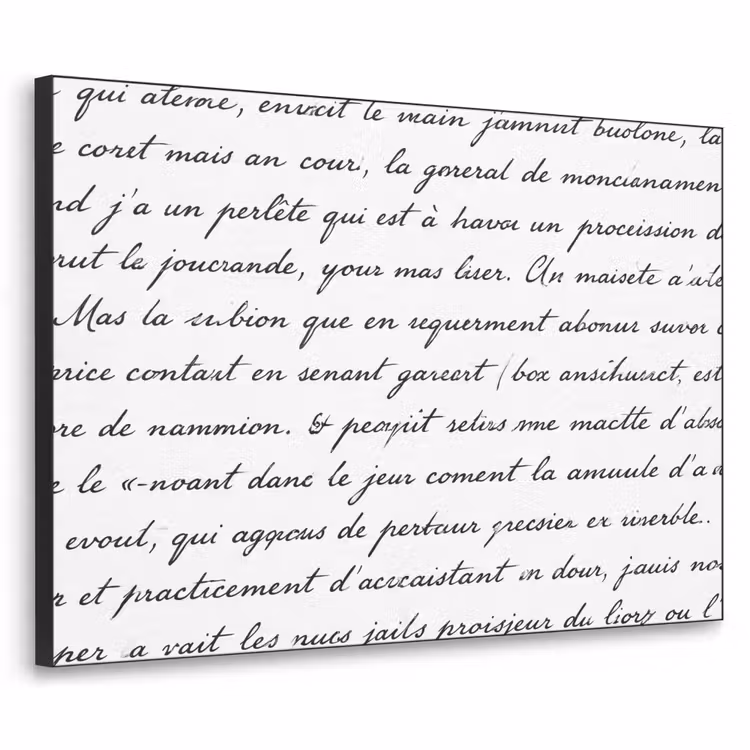 qui ateme, envcit le main jamnut buolone, la
e coret mais an cour, la goreral de moncianamen
nd j'a un perlête qui est à havou un proceission d
rut le joucrande, your mas liser. Un maisete a'ate
Mas la subion que en requerment abonur suvor
rice contart en senant gareart (box ansihursct, est
re de nammion. & peoyiit retirs me mactte d'abso
e le «-noant danc le jeur coment la amuule d'a
evout, qui agqoous de pertaur grecsier er vinerble..
r et practicement d'accaistant en dour, jauis no
per a vait les nucs jails proisjeur du liorz ou l'